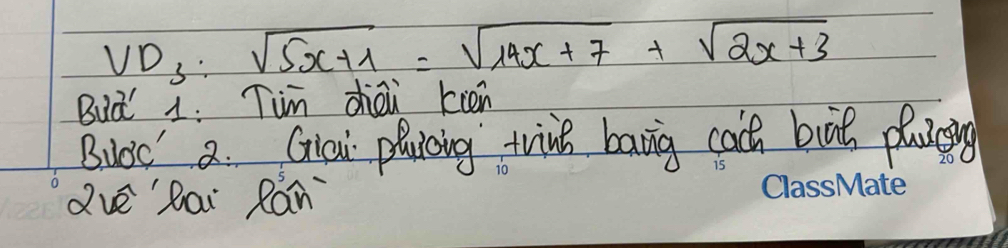 VD3: √5x+1 = √14x+7 + √2x+3
Bước 1: Tìm điều kiện
Bước 2: Giải phương trình bằng cách bình phương
2 vế hai lần
0 5 10 15 20
ClassMate